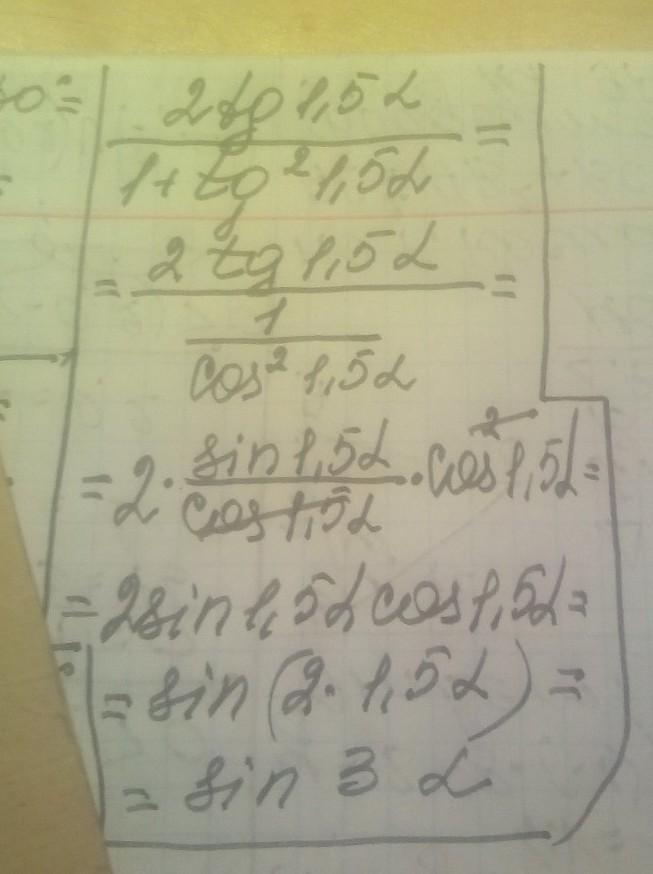 2tg 1,5α
1+tg² 1,5α =
= 2 tg 1,5α =
1
cos² 1,5α
= 2· sin 1,5α / cos 1,5α · cos² 1,5α =
= 2sin 1,5α cos 1,5α =
= sin (2· 1,5α) =
= sin 3 α